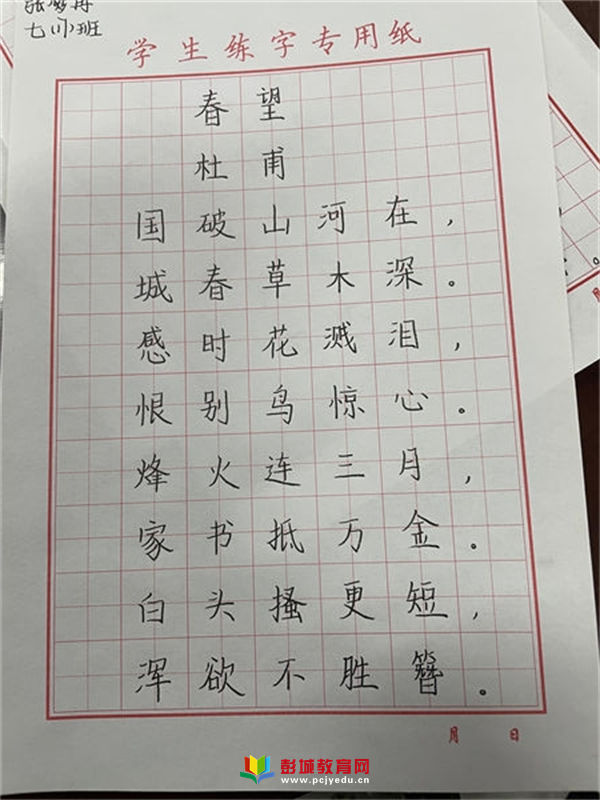 七(1)班
学生练字专用纸
春望
杜甫
国破山河在，
城春草木深。
感时花溅泪，
恨别鸟惊心。
烽火连三月，
家书抵万金。
白头搔更短，
浑欲不胜簪。
月 日
彭城教育网
www.pcjyedu.cn